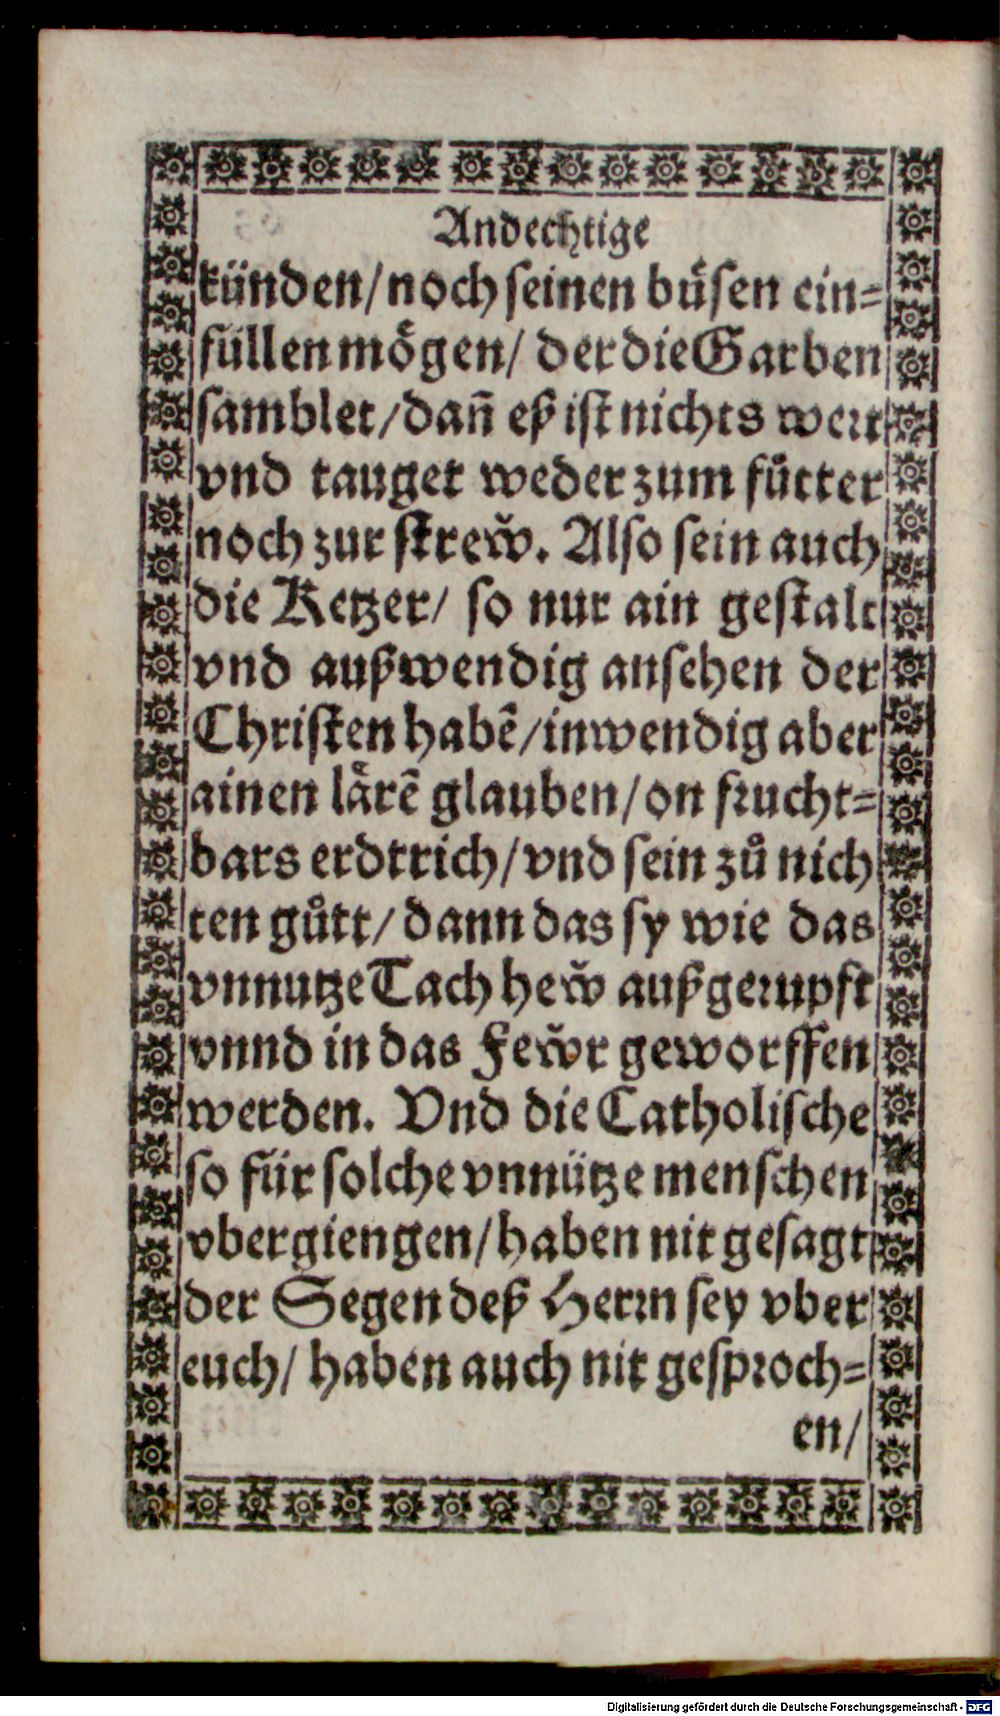 Andechtige
künden/ noch seinen bůsen ein=
füllen mo̊gen/ der die Garben
samblet/ dañ eß ist nichts wert
vnd tauget weder zum fůtter
noch zur strew̆. Also sein auch
die Ketzer/ so nur ain gestalt
vnd außwendig ansehen der
Christen habẽ/ inwendig aber
ainen lårẽ glauben/ on frucht=
bars erdtrich/ vnd sein zů nich
ten gůtt/ dann das sy wie das
vnnutze Tach hew̆ außgerupft
vnnd in das Few̆r geworffen
werden. Vnd die Catholische
so für solche vnnütze menschen
vbergiengen/ haben nit gesagt
der Segen deß Herrn sey vber
euch/ haben auch nit gesproch=
en/
Digitalisierung gefördert durch die Deutsche Forschungsgemeinschaft - DFG